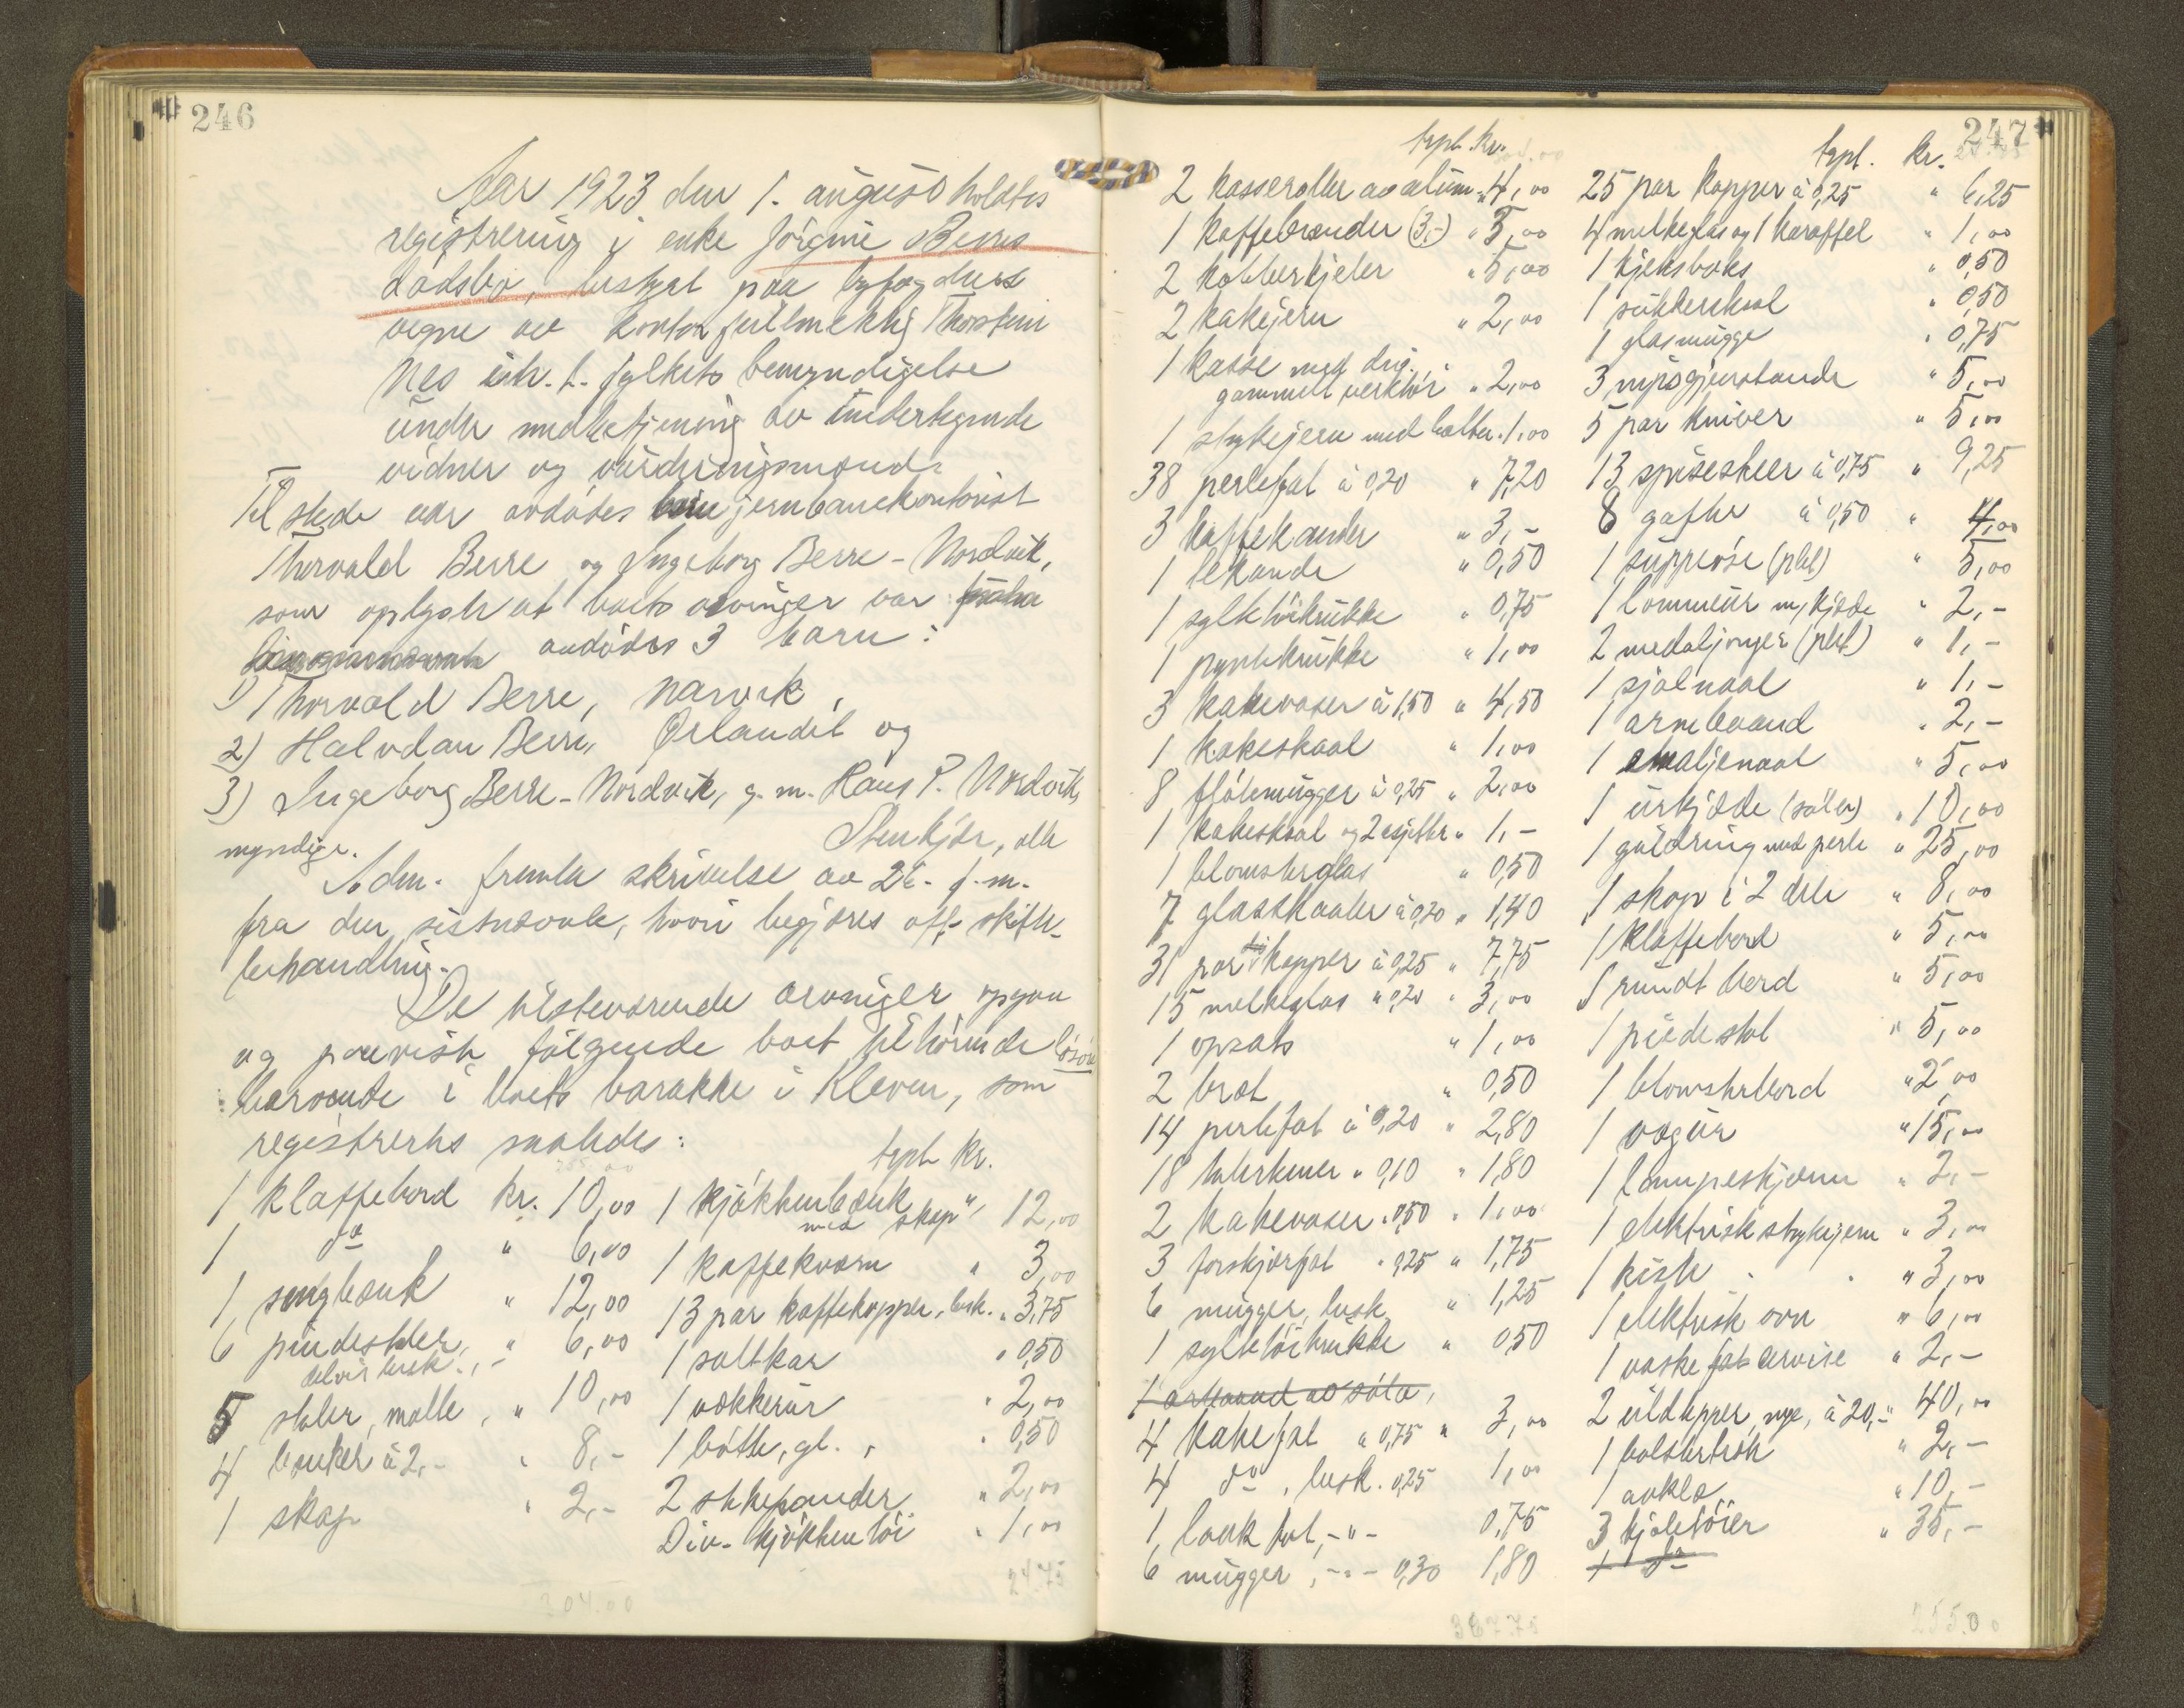 246
Aar 1923 den 1. august holdtes
registrering i enke Jörgine Berres
dödsbo, bestyret paa byfogdens
vegne av kontorfullmektig Thorstein
Nes inh. t. fylkets bemyndigelse
under medbetjening av undertegnede
vidner og vurderingsmænd.
Tilstede var avdödes jernbanekontorist
Thorvald Berre og Ingeborg Berre-Nordvik,
som oplyste at boets arvinger var
avdödes 3 barn:
1) Thorvald Berre, Narvik,
2) Halvdan Berre, Ørlandet og
3) Ingeborg Berre-Nordvik, g. m. Hans P. Nordvik,
Stenkjær, alle
myndige.
Adm. fremla skrivelse av 26. f. m.
fra den sistnævnte, hvori begjæres off. skifte-
behandling.
De tilsteværende arvinger opgav
og paaviste fölgende boet tilhörende lösöre
beroende i boets barakke i Kleven, som
registrertes saaledes:
tspt. kr.
1 klaffebord kr. 10,00
1 do " 6,00
1 sengbænk " 12,00
6 pindestoler, " 6,00
delvis besk.
5 stoler, malte, " 10,00
4 bænker à 2,- " 8,-
1 skap " 2,-
304.00
1 kjökkenbænk
med skap " 12,00
1 kaffekværn " 3,00
13 par kaffekopper, besk. " 3,75
1 saltkar " 0,50
1 vækkerur " 2,00
1 bötte, gl. " 0,50
2 stekepander " 2,00
Div. kjökkentöi " 1,00
24.75
247
tspt. kr.
2 kasseroller av alum. " 4,00
1 kaffebrænder (3,-) " 3,00
2 kobberkjeler " 5,00
2 kakejern " 2,00
1 kasse med div.
gammelt verktöi " 2,00
1 strykejern med bolter " 1,00
38 perlefat à 0,20 " 7,20
3 kaffekander " 3,-
1 tekande " 0,50
1 syltetöikrukke " 0,75
1 pyntekrukke " 1,00
3 kakevaser à 1,50 " 4,50
1 kakeskaal " 1,00
8 flötemugger à 0,25 " 2,00
1 kakeskaal og 2 asjetter " 1,-
1 blomsterglas " 0,50
7 glasskaaler à 0,20 " 1,40
31 par kopper à 0,25 " 7,75
15 melkeglas " 0,20 " 3,00
1 opsats " 1,00
2 bræt " 0,50
14 perlefat à 0,20 " 2,80
18 tallerkener " 0,10 " 1,80
2 kakevaser " 0,50 " 1,00
3 forskjærfat " 0,25 " 1,75
6 mugger, besk. " 1,25
1 syltetöikrukke " 0,50
1 armbaand av sölv,
4 kakefat " 0,75 " 3,00
4 do , besk. 0,25 1,00
1 fat, -"- 0,75
6 mugger, -"- 0,30 1,80
tspt. kr.
25 par kopper à 0,25 " 6,25
4 melkeglas og 1 karaffel " 1,00
1 kjeksboks " 0,50
1 sukkerskaal " 0,50
1 glasmugge " 0,75
3 nipsgjenstande " 5,00
5 par kniver " 5,00
13 spiseskeer à 0,75 " 9,25
8 gafler à 0,50 " 4,00
1 suppeöse (plet) " 5,00
1 lommeur m/kjæde " 2,-
2 medaljonger (plet) " 1,-
1 sjalnaal " 1,-
1 armbaand " 2,-
1 emaljenaal " 5,00
1 urkjæde (sölv) " 10,00
1 guldring med perle " 25,00
1 skap i 2 dele " 8,00
1 klaffebord " 5,00
1 rundt bord " 5,00
1 piedestal " 5,00
1 blomsterbord " 2,00
1 vægur " 15,00
1 lampeskjærm " 2,-
1 elektrisk strykejern " 3,00
1 kiste " 3,00
1 elektrisk ovn " 6,00
1 vaskefatservise " 2,-
2 uldtepper, nye, à 20,- " 40,00
1 bolstertræk " 2,-
1 aaklæ " 10,-
3 kjoletöier " 35,-
1 do
255.00